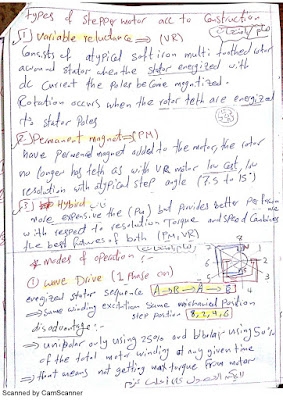 types of stepper motor acc to Construction
① Variable reluctance ⇒ (VR)
Consists of atypical soft iron multi toothed rotor
around stator when the stator energized with
dc current the poles become magnetized.
Rotation occurs when the rotor teth are energized
its stator Poles
2- Permanent magnet ⇒ (PM)
have permened magnet added to the motor, the rotor
no longer has teth as with VR motor low Cost, low
resolution with atypical step angle (7.5 to 15°)
3- Hybrid
more expensive the (PM) but provides better per
with respect to resolution Torque and speed Combines
the best features of both (PM, VR)
* modes of operation :-
① wave Drive (1 Phase on)
energized stator sequence A→B→A→B
⇒ same winding excitation same mechanical Position
step position 8, 2, 4, 6
disadvantage :-
⇒ unipolar only using 25% and bibolar using 50%
of the total motor winding at any given time
⇒ that means not getting max torque from motor
Scanned by CamScanner